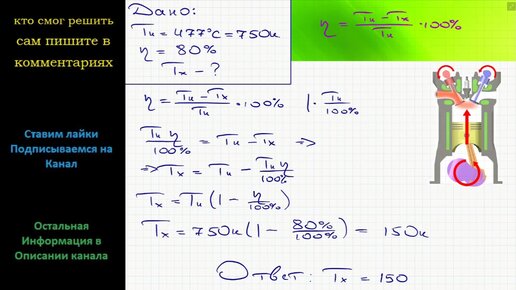 кто смог решить
сам пишите в
комментариях
Ставим лайки
Подписываемся на
Канал
Остальная
Информация в
Описании канала
Дано:
Tн = 477°C = 750К
η = 80%
Tх - ?
η = (Tн - Tх)/Tн · 100%
η = (Tн - Tх)/Tн · 100% | · Tн/100%
Tн η/100% = Tн - Tх =>
=> Tх = Tн - Tн η/100%
Tх = Tн (1 - η/100%)
Tх = 750К (1 - 80%/100%) = 150К
Ответ: Tх = 150